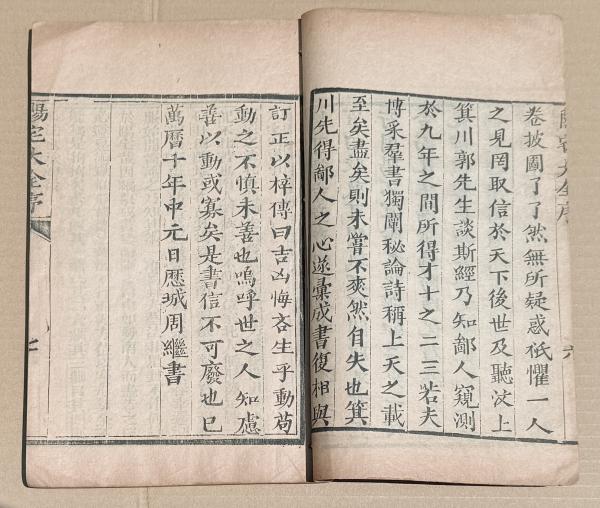 陽宅大全序
卷披圖了了然無所疑惑祇懼一人
之見罔取信於天下後世及聽汶上
箕川郭先生談斯經乃知鄙人窺測
於九年之間所得才十之二三若夫
博采羣書獨闡秘論詩稱上天之載
至矣盡矣則未嘗不爽然自失也箕
川先得鄙人之心遂彙成書復相與
六
訂正以梓傳曰吉凶悔吝生乎動苟
動之不慎未善也嗚呼世之人知慮
善以動或寡矣是書信不可廢也已
萬曆十年中元日歷城周繼書
陽宅大全序
七